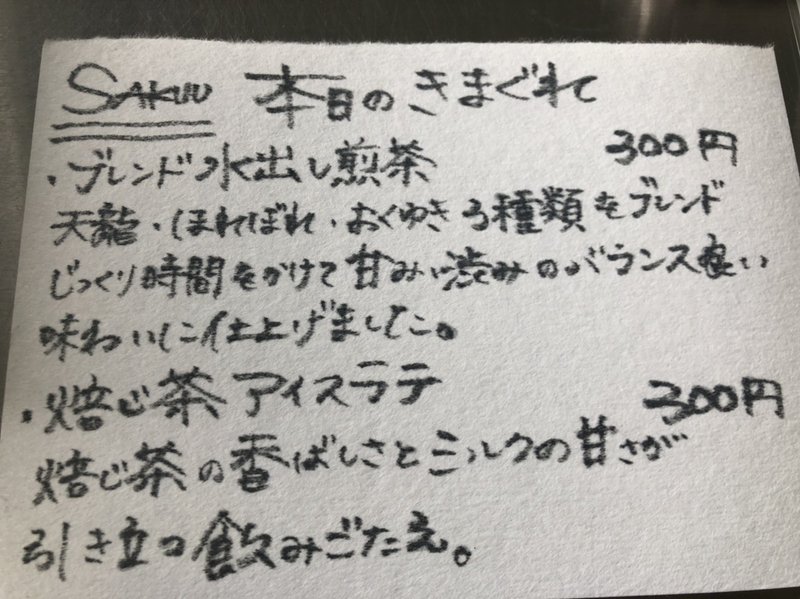 SAKUU 本日のきまぐれ
・ブレンド水出し煎茶 300円
天龍・ほれぼれ・おくゆき 3種類をブレンド
じっくり時間をかけて甘みと渋みのバランス良い
味わいに仕上げました。
・焙じ茶アイスラテ 300円
焙じ茶の香ばしさとミルクの甘さが
引き立つ飲みごたえ。